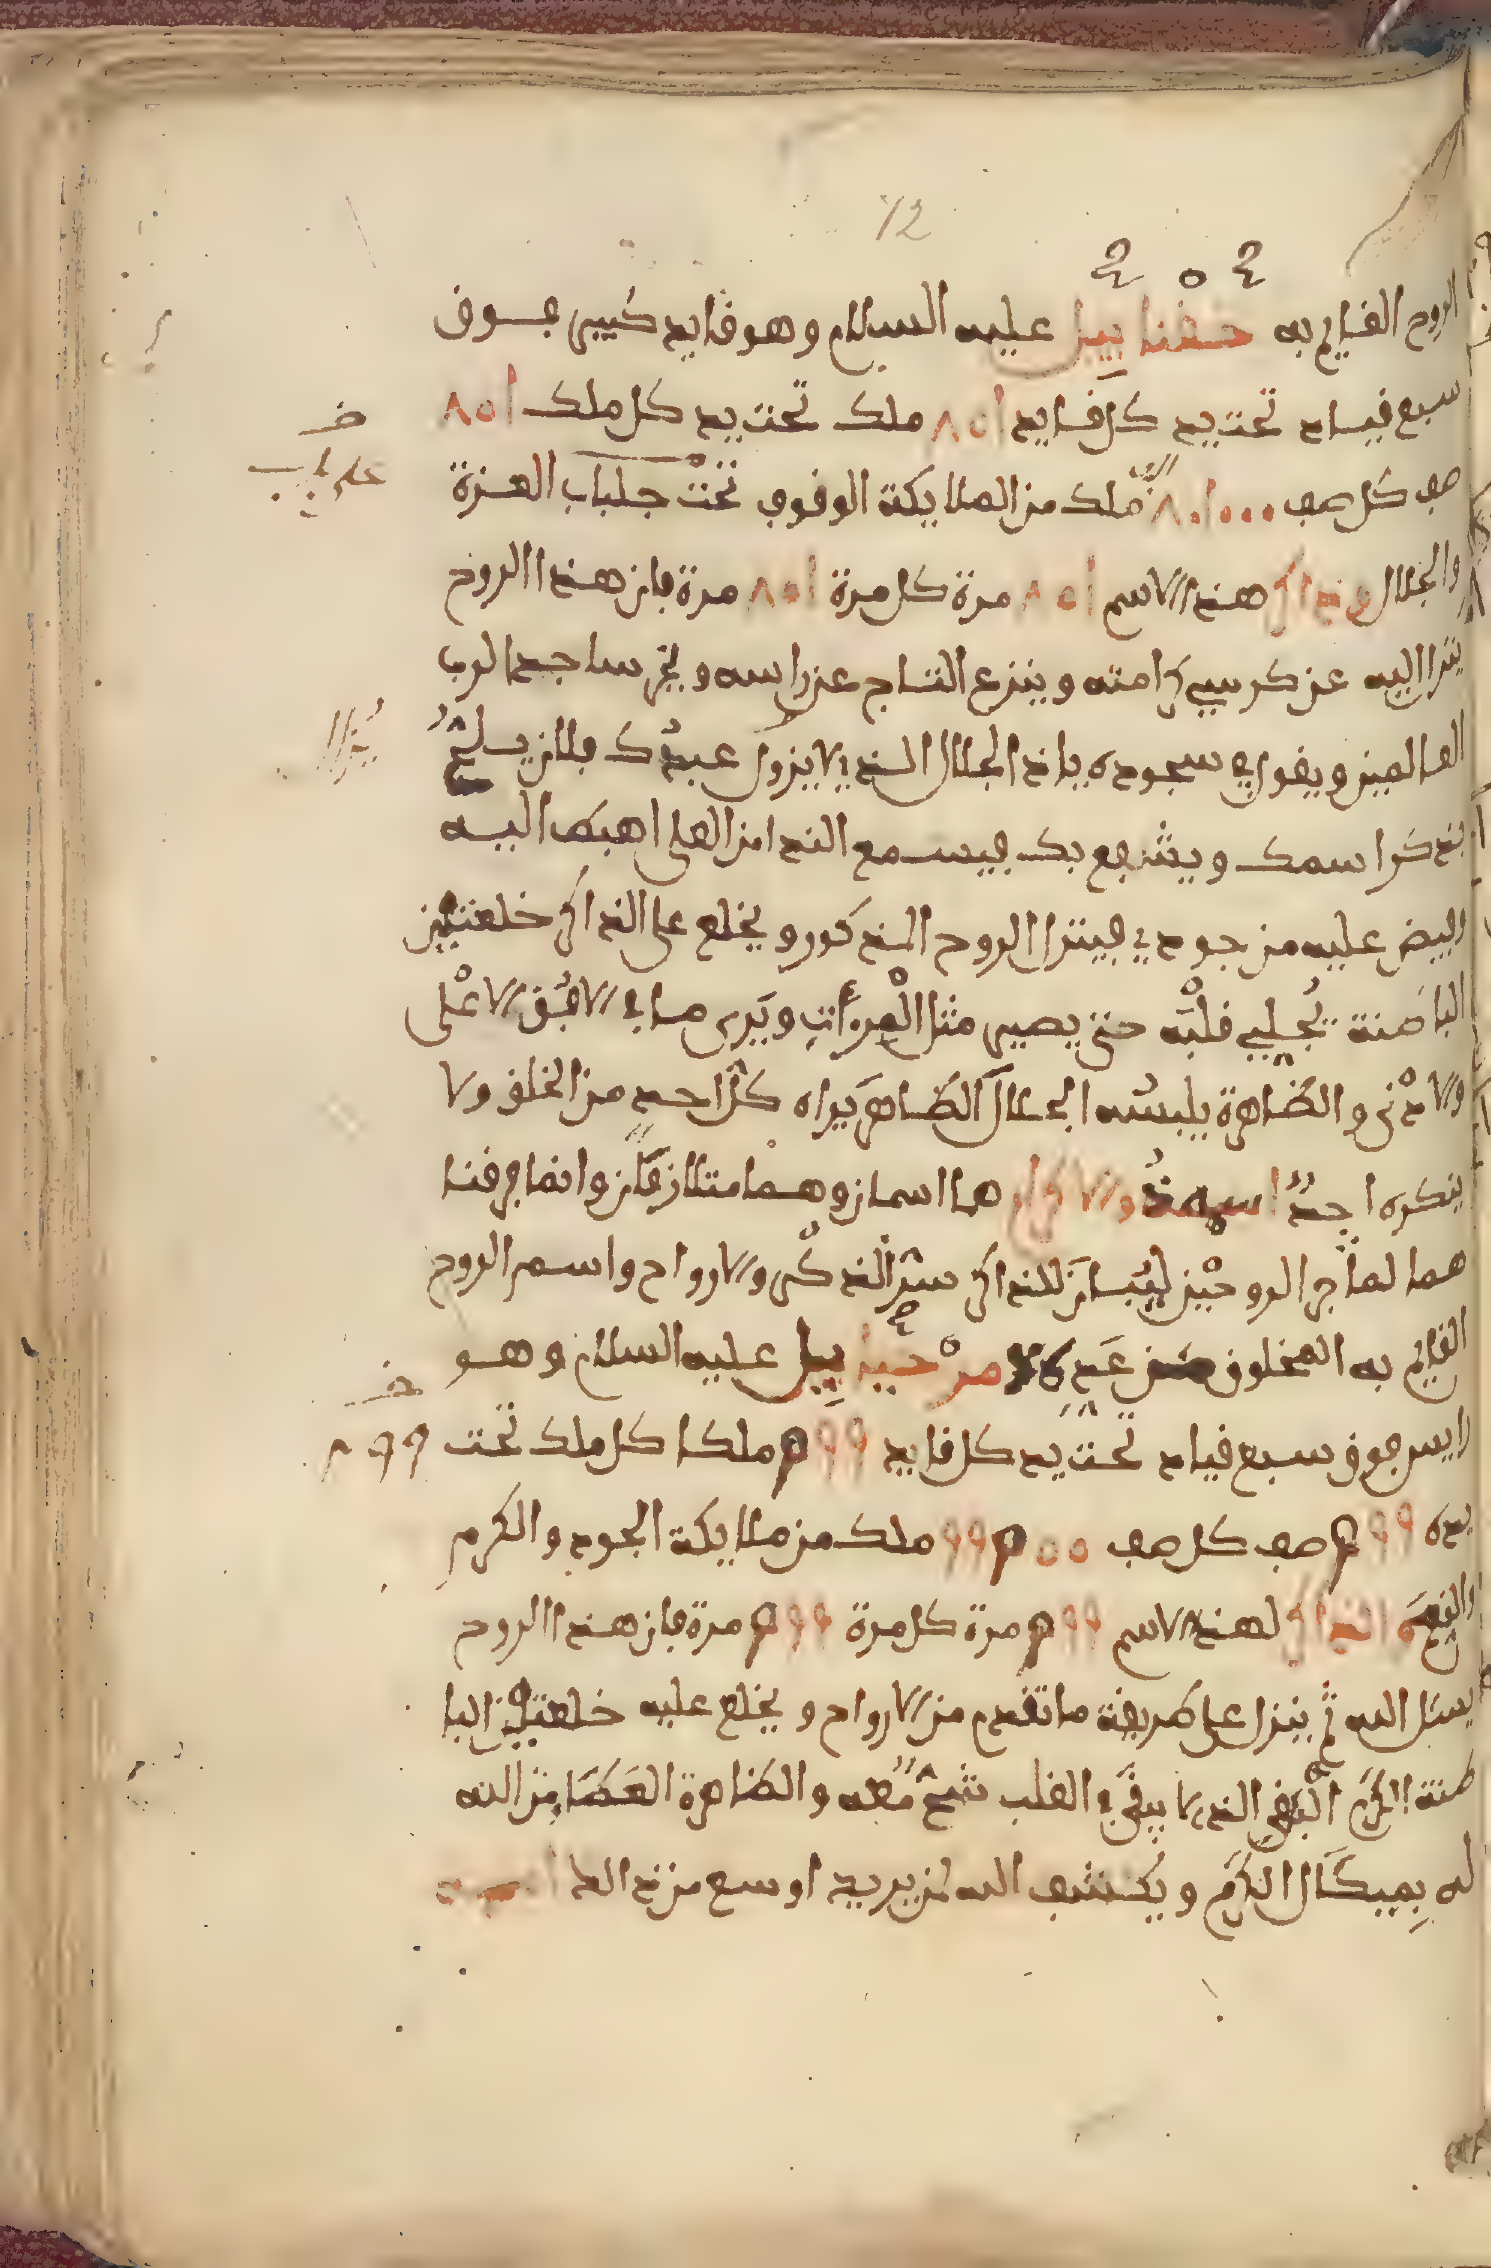 72
الروح القايم به حفنابيل عليه السلام وهو قايد كبير بوق
سبع قياد تحت يد كل قايد ١٥٨ ملك تحت يد كل ملك ١٥٨
صف كل صف ملك من الملايكة الوقوف تحت جلباب العزة
والجلال وذاكر هذا الاسم ١٥٨ مرة كل مرة ١٥٨ مرة فان هذا الروح
ينزل اليه عن كرسي كرامته وينزع التاج عن راسه ويخر ساجدا لرب
العالمين ويقول في سجوده يا ذا الجلال الذي لا يزول عبدك فلان
بذكر اسمك ويشفع بك فيسمع الندا من العلى اهبط اليه
وافيض عليه من جودي فينزل الروح المذكور ويخلع على الذاكر خلعتين
الباطنة تجلي قلبه حتى يصير مثل المرءات ويرى ما في الافق الاعلى
والادنى والظاهرة يلبسه الجلال الظاهر يراه كل احد من الخلق ولا
ينكره احد اسمه والاكرام هما اسمان وهما متلازمان وانما فرقنا
هما لما في الروحين لباسان للذاكر سر الذكر والارواح واسم الروح
القايم به المخلوق من عدده عليه السلام وهو
رايس جوق سبع قياد تحت يد كل قايد ٩٩٢ ملكا كل ملك تحت
يده ٩٩٢ صف كل صف ملك من ملايكة الجود والكرم
الذاكر لهذا الاسم ٩٩٢ مرة كل مرة ٩٩٢ مرة فان هذا الروح
يسئل الله ثم ينزل على طريقة ما تقدم من الارواح ويخلع عليه خلعتين البا
طنة الكرم النفي الذي لا يبقى في القلب شح معه والظاهرة العطا من الله
له بميكال الكرم ويكشف الله لمن يريد اوسع من ذالك